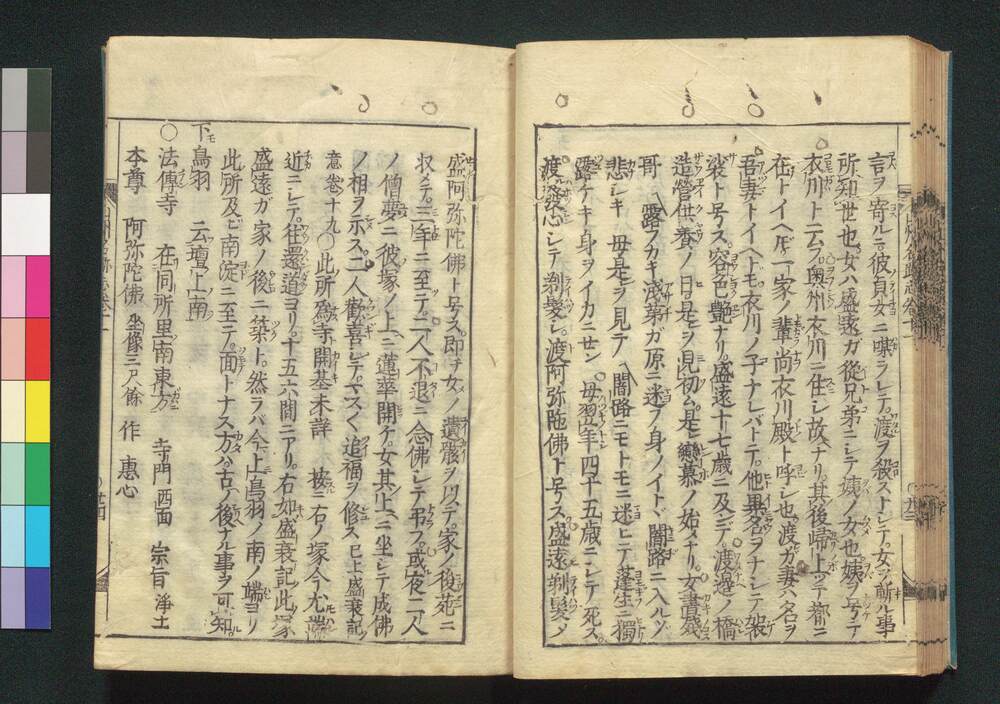 言ヲ寄ルニ彼貞女ニ謀ラレテ渡ヲ殺ストシテ女ヲ斬ル事
所知世也女ハ盛遠ガ從兄弟ニシテ姨ノ女也姨ヲ号テ
衣川ト云フ奥州衣川ニ住シ故ナリ其後帰上ツテ都ニ
在トイヘドモ一家ノ輩尚衣川殿ト呼シ也渡ガ妻ハ名ヲ
吾妻トイヘトモ衣川ノ子ナレバトテ他異名ヲナシテ袈
裟ト号ス容色艶ナリ盛遠十七歳ニ及ンデ渡邉ノ橋
造営供養ノ日是ヲ見初ム是レ戀慕ノ始メナリ女書残
哥 露フカキ浅茅ガ原ニ迷フ身ノイトヾ闇路ニ入ルゾ
悲シキ 母是ヲ見テ 闇路ニモトモニ迷ヒテ蓬生ニ獨
露ケキ身ヲイカニセン 母翌年四十五歳ニシテ死ス
渡發心シテ剃髪シ渡阿弥陀佛ト号ス盛遠剃髪メ
盛阿弥陀佛ト号ス即チ女ノ遺骸ヲ以テ家ノ後苑ニ
収メテ三年ニ至テ二人不退ニ念佛シテ弔フ或夜二人
ノ僧夢ニ彼塚ノ上ニ蓮華開ケ女其上ニ坐シテ成佛
ノ相ヲ示ス二人歡喜シテマスく追福ヲ修ス 已上盛衰記
意巻十九 ○此所為寺開基未詳 按ニ右ノ塚今尤端
近ニシテ往還道ヨリ十五六間ニアリ右如盛衰記此塚
盛遠ガ家ノ後ニ築ト然ラバ今上鳥羽ノ南ノ端ヨリ
此所及ビ南淀ニ至テ面トナス方ハ古ノ後ナル事ヲ可知
下鳥羽 云壇上南
○法傳寺 在同所里南東方 寺門西面 宗旨浄土
本尊 阿弥陀佛 坐像三尺餘 作 惠心